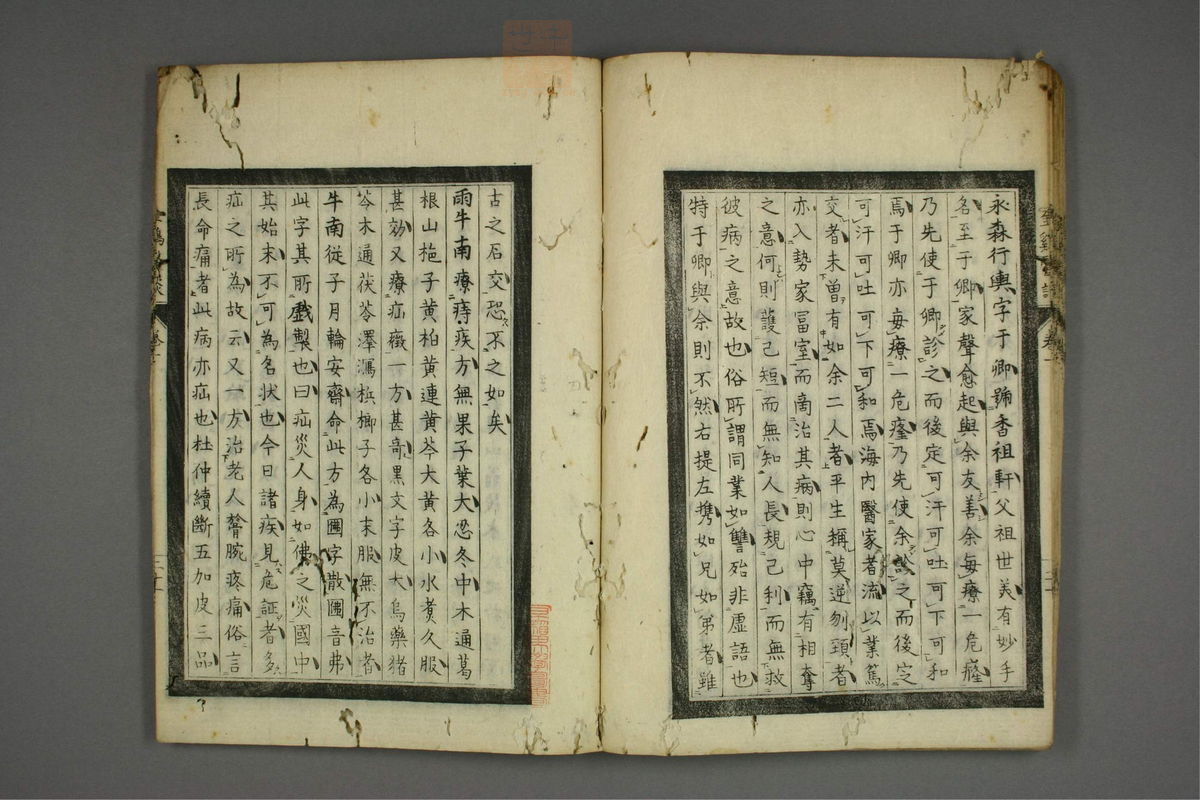 永森行輿字于卿號香祖軒父祖世美有妙手
名至于卿家聲愈起與余友善余每療一危癃
乃先使于卿診之而後定可汗可吐可下可和
焉于卿亦每療一危癃乃先使余診之而後定
可汗可吐可下可和焉海内醫家者流以業篤
交者未曾有如余二人者平生稱莫逆刎頸者
亦入勢家冨室而啇治其病則心中竊有相奪
之意何則護己短而無知人長規己利而無救
彼病之意故也俗所謂同業如讐殆非虚語也
特于卿與余則不然右提左携如兄如弟者雖
古之石交恐不之如矣
雨牛南療痔疾方無果子葉大忍冬中木通葛
根山梔子黄柏黄連黄芩大黄各小水煑久服
甚効又療疝癥一方甚竒黒文字皮大烏藥猪
苓木通茯苓澤瀉檳榔子各小末服無不治者
牛南從子月輪安齋命此方為圕字散圕音弗
此字其所戲製也曰疝災人身如佛之災國中
其始末不可為名状也今日諸疾見危証者多
疝之所為故云又一方治老人臂腕疼痛俗言
長命痛者此病亦疝也杜仲續斷五加皮三品